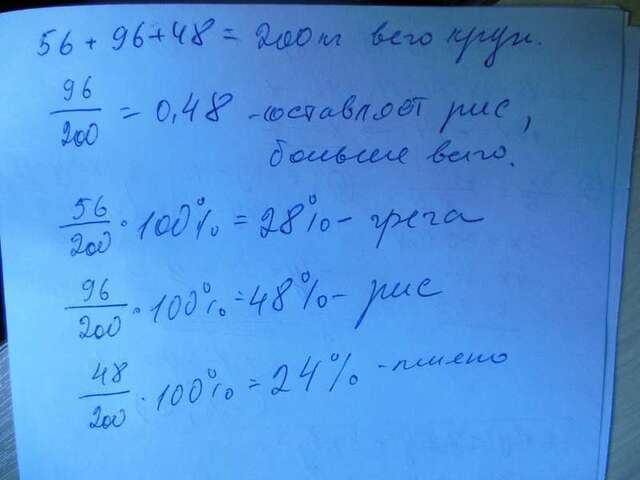 56 + 96 + 48 = 200 кг всего круп.
96/200 = 0,48 - составляет рис,
больше всего.
56/200 · 100% = 28% - греча
96/200 · 100% = 48% - рис
48/200 · 100% = 24% - пшено